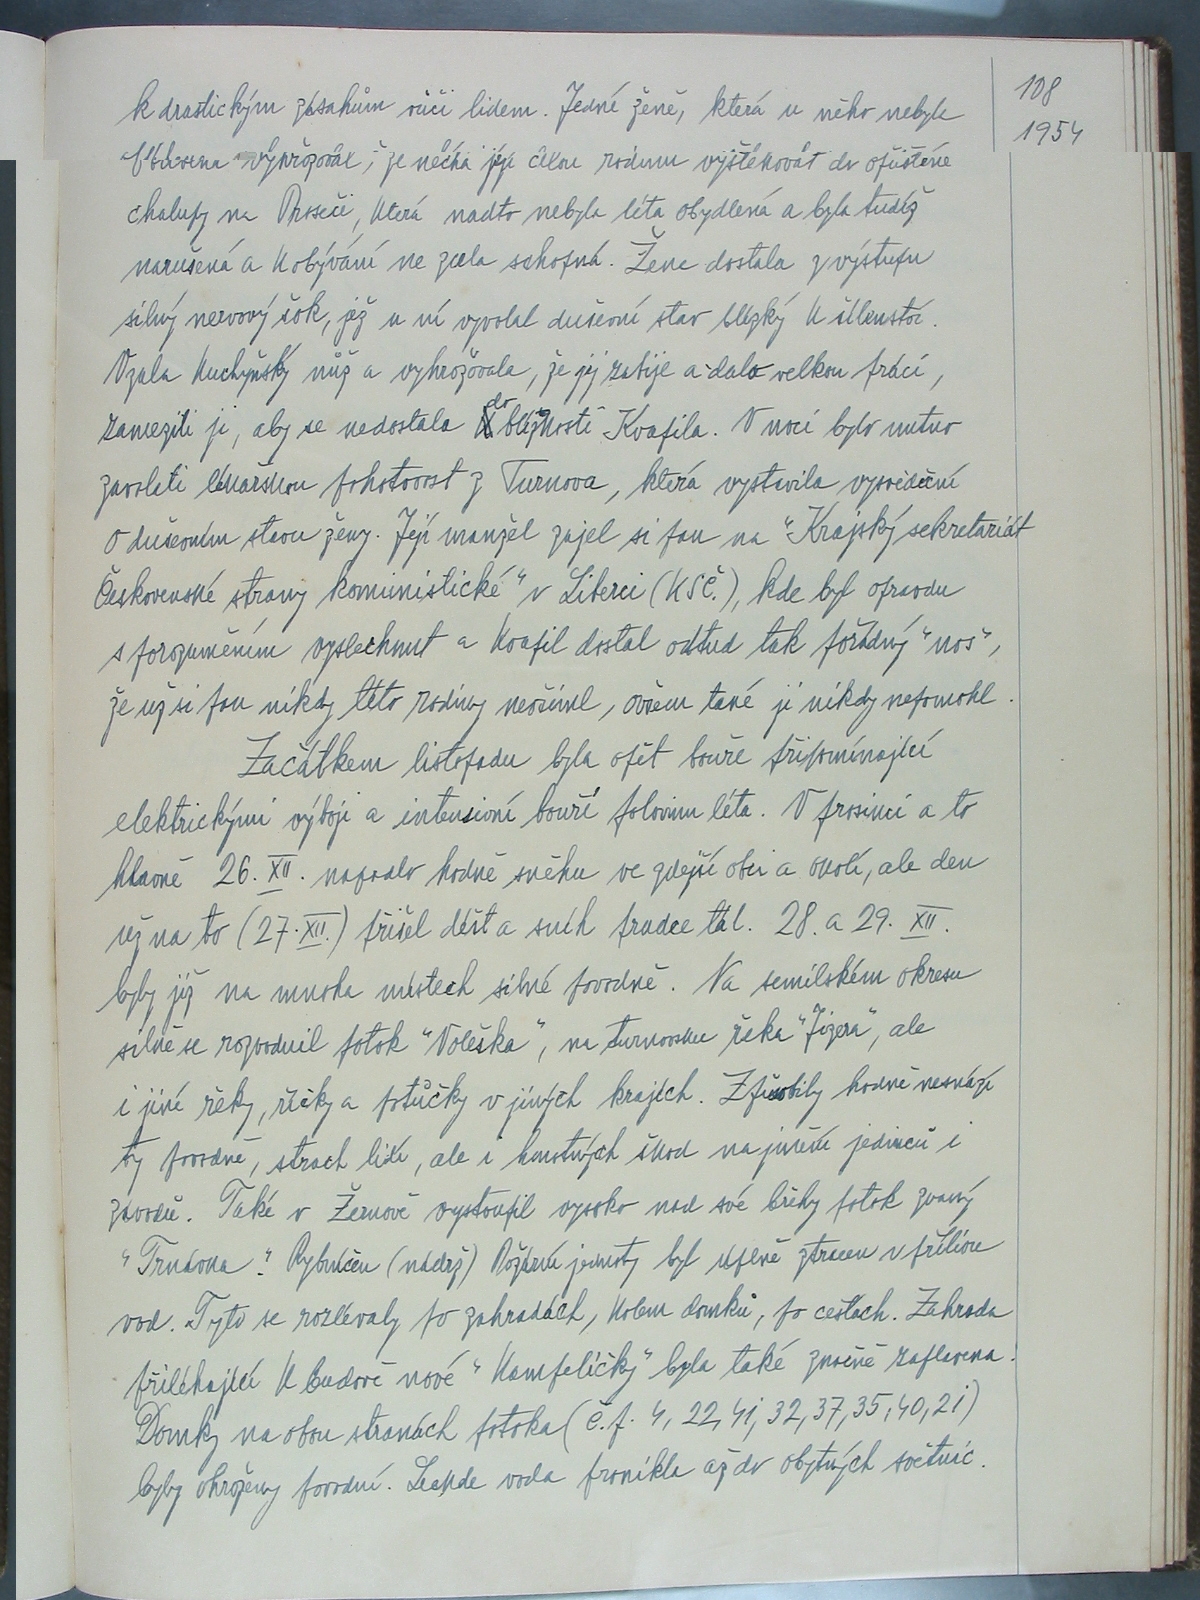 108
1954
k drastickým zásahům vůči lidem. Jedné ženě, která u něho nebyla
oblíbena vyhrožoval, že nechá její celou rodinu vystěhovat do opuštěné
chalupy na Proseči, která nadto nebyla léta obydlená a byla tudíž
narušená a k obývání ne zcela schopná. Žena dostala z výstupu
silný nervový šok, jež u ní vyvolal duševní stav blízký k šílenství.
Vzala kuchyňský nůž a vyhrožovala, že jej zabije a dalo velkou práci,
zameziti ji, aby se nedostala do blízkosti Kvapila. V noci bylo nutno
zavolati lékařskou pohotovost z Turnova, která vystavila vysvědčení
o duševním stavu ženy. Její manžel zajel si pak na "Krajský sekretariát
Československé strany komunistické" v Liberci (KSČ.), kde byl opravdu
s porozuměním vyslechnut a Kvapil dostal odtud tak pořádný "nos",
že už si pak nikdy této rodiny nevšiml, ovšem také ji nikdy nepomohl.
Začátkem listopadu byla opět bouře připomínající
elektrickými výboji a intensivní bouří polovinu léta. V prosinci a to
hlavně 26. XII. napadlo hodně sněhu ve zdejší obci a okolí, ale den
už na to (27. XII.) přišel déšt a sníh prudce tál. 28. a 29. XII.
byly již na mnoha místech silné povodně. Na semilském okresu
silně se rozvodnil potok "Voleška", na turnovsku řeka "Jizera", ale
i jiné řeky, říčky a potůčky v jiných krajích. Způsobily hodně nesnází
ty povodně, strach lidí, ale i hmotných škod na jmění jedinců i
závodů. Také v Žernově vystoupil vysoko nad své břehy potok zvaný
"Trnávka". Rybníček (nádrž) Požární jednoty byl úplně ztracen v přílivu
vod. Tyto se rozlévaly po zahradách, kolem domků, po cestách. Zahrada
přiléhající k budově nové "Kampeličky" byla také značně zaplavena.
Domky na obou stranách potoka (č.p. 4, 22, 41, 32, 37, 35, 40, 21)
byly ohroženy povodní. Leckde voda pronikla až do obytných světnic.